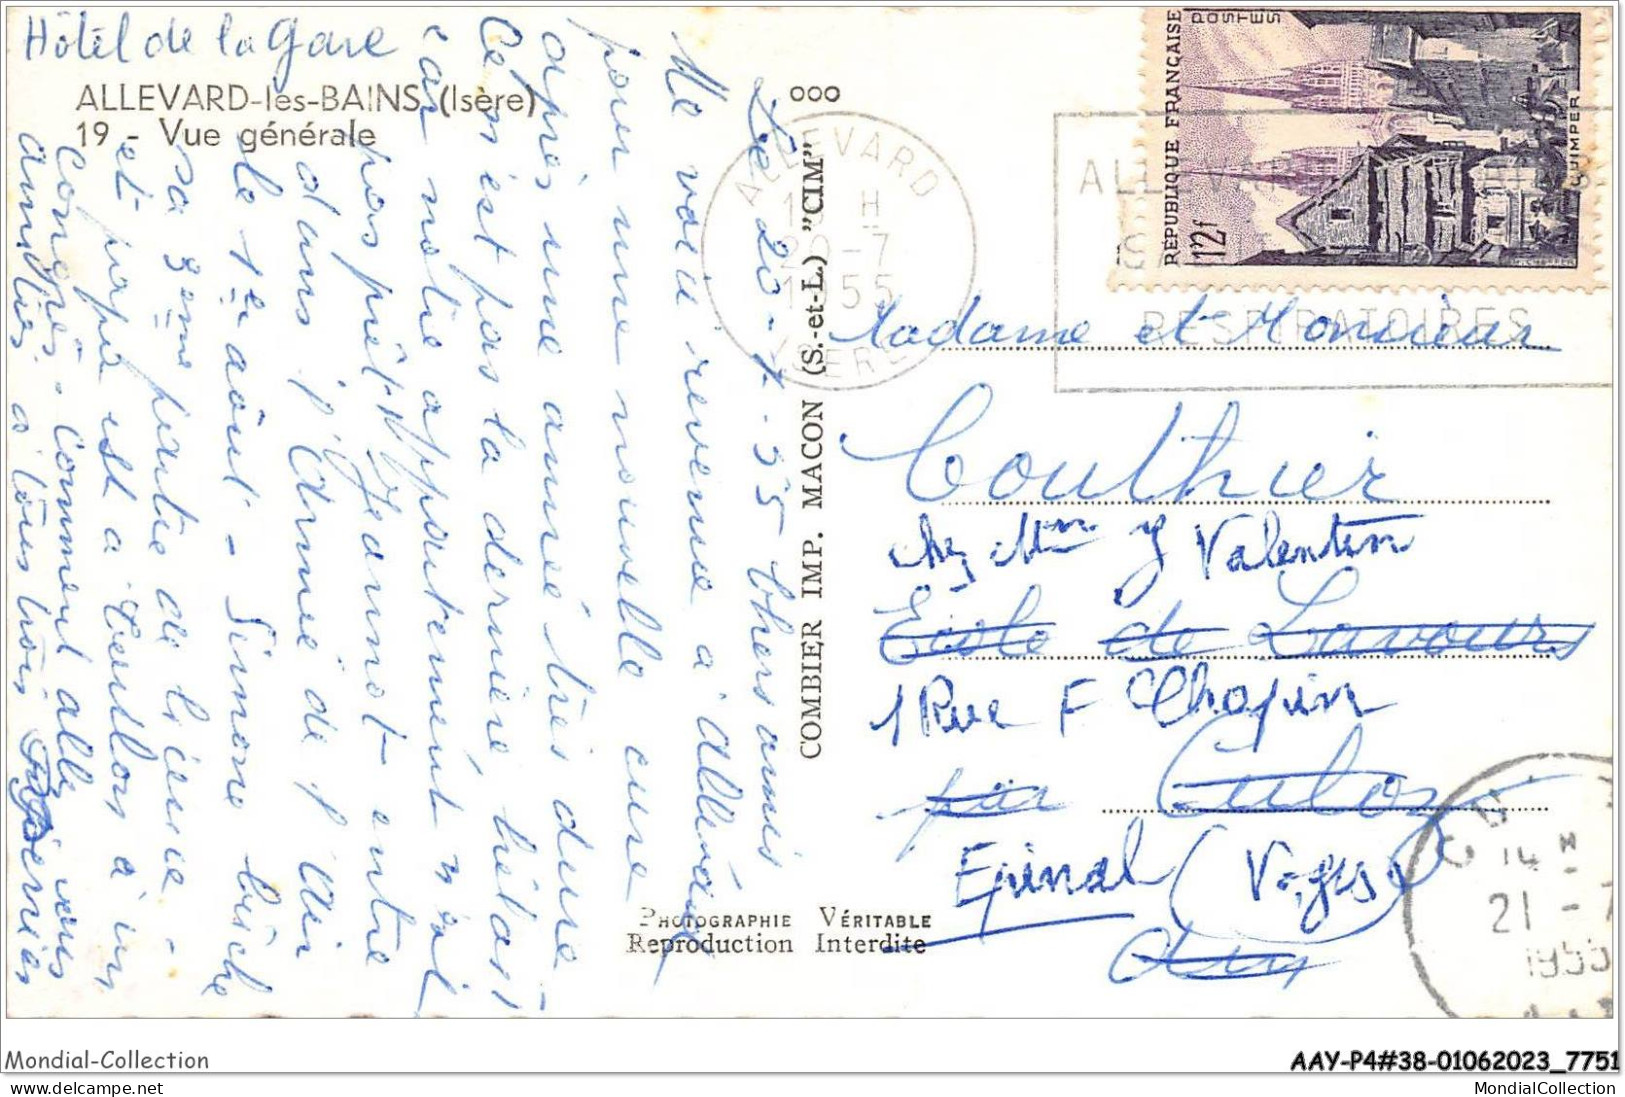 Hôtel de la Gare
ALLEVARD-les-BAINS (Isère)
19 - Vue générale
Le 20-7-55 Chers amis
Me voici revenue à Allevard
pour une nouvelle cure
après une année très dure
Ce n'est pas la dernière, hélas!
car notre appartement n'est
pas prêt. Jeannot entre
dans l'Armée de l'Air
le 1er août - Simone bûche
sa 3ème partie de licence -
et papa est à Toulon à un
Congrès - Comment allez vous
amitiés à tous trois
COMBIER IMP. MACON (S.-et-L.) "CIM"
PHOTOGRAPHIE VÉRITABLE
Reproduction Interdite
ALLEVARD
H
20-7
1955
ISERE
ALLEVARD
RESPIRATOIRES
RÉPUBLIQUE FRANÇAISE
POSTES
12f
QUIMPER
Madame et Monsieur
Couthier
chez Mme Valentin
Ecole de Lavours
1 Rue F Chopin
par Culoz
Epinal (Vosges)
Ain
14 H
21-7
1955
Mondial-Collection
delcampe.net
AAY-P4#38-01062023_7751
MondialCollection